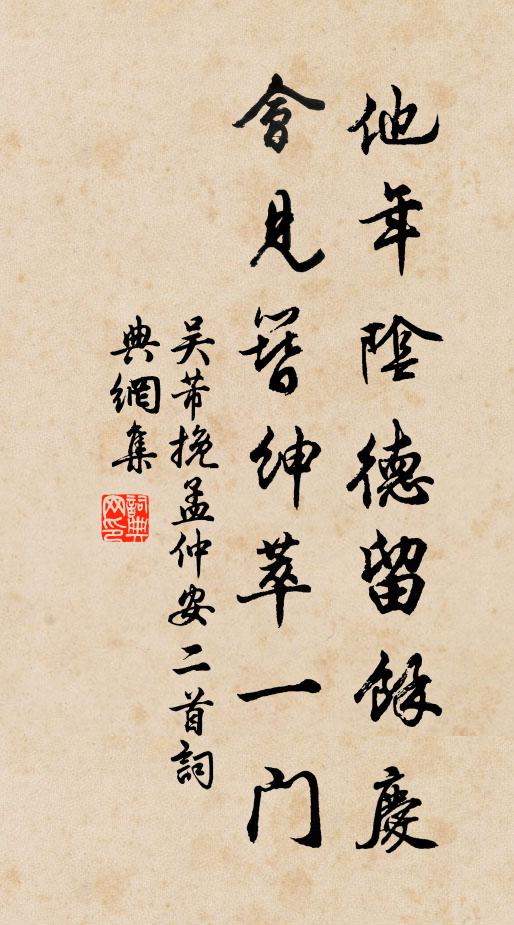 他年陰德留餘慶
會見簪紳萃一門
吴芾挽孟仲安二首詞
典網集
詞典
网印